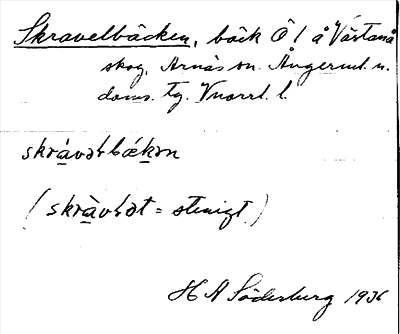 Skravelbäcken, bäck Ö l å Västanå
skog, Arnäs sn. Ångerml. n.
doms. tg. Vnorrl. l.
skrávəɫbækən
(skràvɫət = stenigt)
H A Söderberg 1936